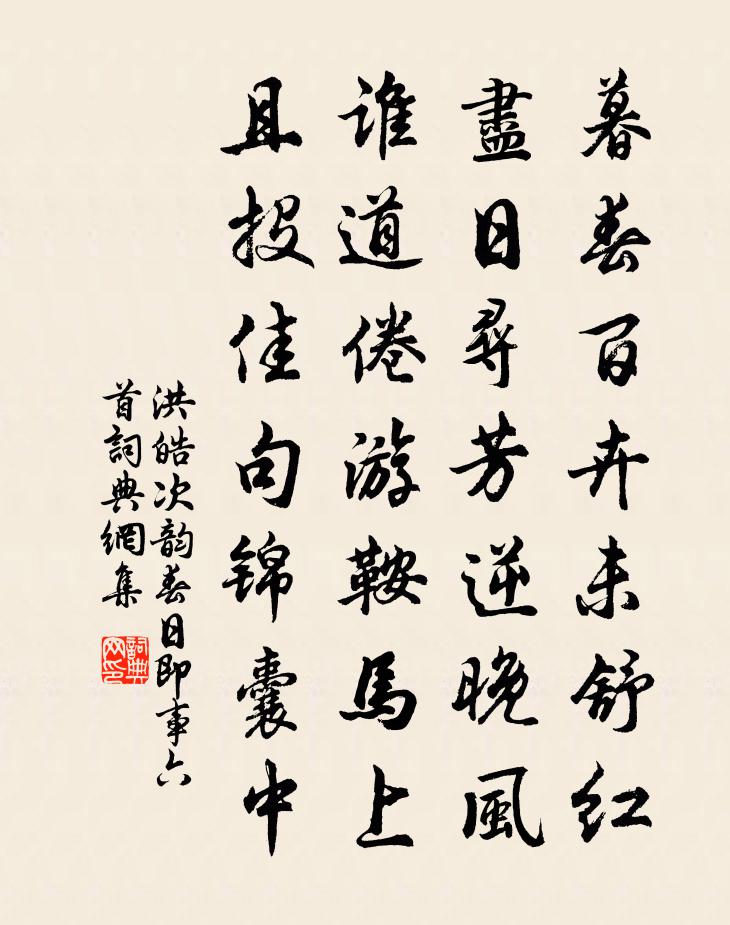 暮春百卉未舒红
盡日尋芳逆晚風
谁道倦游鞍馬上
且投佳句锦囊中
洪皓次韵春日即事六
首詞典網集
詞典网印